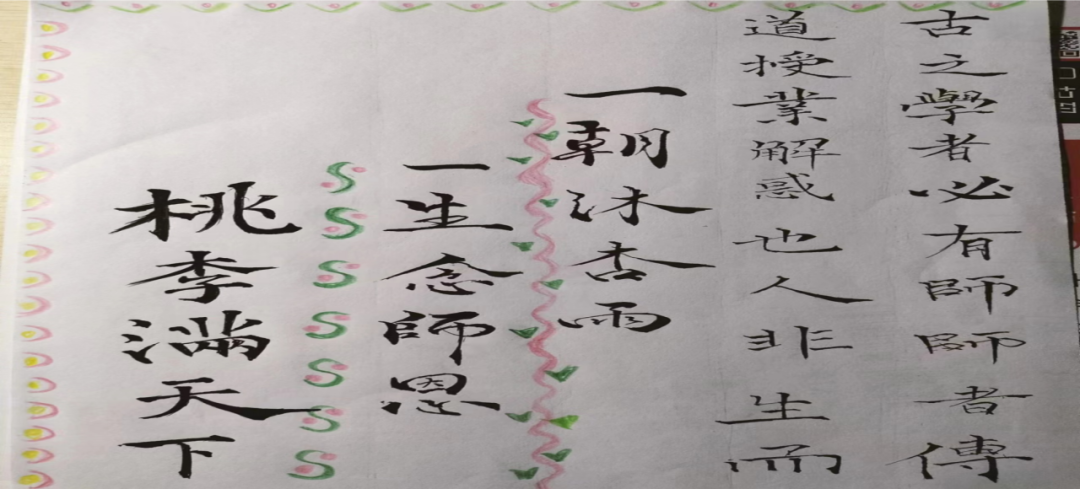 古之學者必有師師者傳
道授業解惑也人非生而
一朝沐杏雨
一生念師恩
桃李滿天下